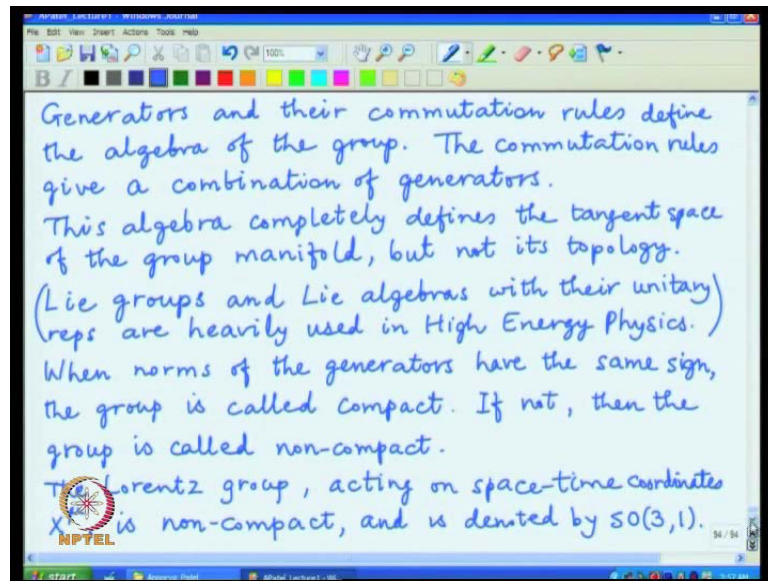 APatel_Lecture1 - Windows Journal
File Edit View Insert Actions Tools Help
100%
B I
Generators and their commutation rules define
the algebra of the group. The commutation rules
give a combination of generators.
This algebra completely defines the tangent space
of the group manifold, but not its topology.
(Lie groups and Lie algebras with their unitary
reps are heavily used in High Energy Physics.)
When norms of the generators have the same sign,
the group is called compact. If not, then the
group is called non-compact.
The Lorentz group, acting on space-time coordinates
is non-compact, and is denoted by SO(3,1).
NPTEL
94 / 94
start Apoorva Patel APatel_Lecture1 - Wi... 3:57 AM